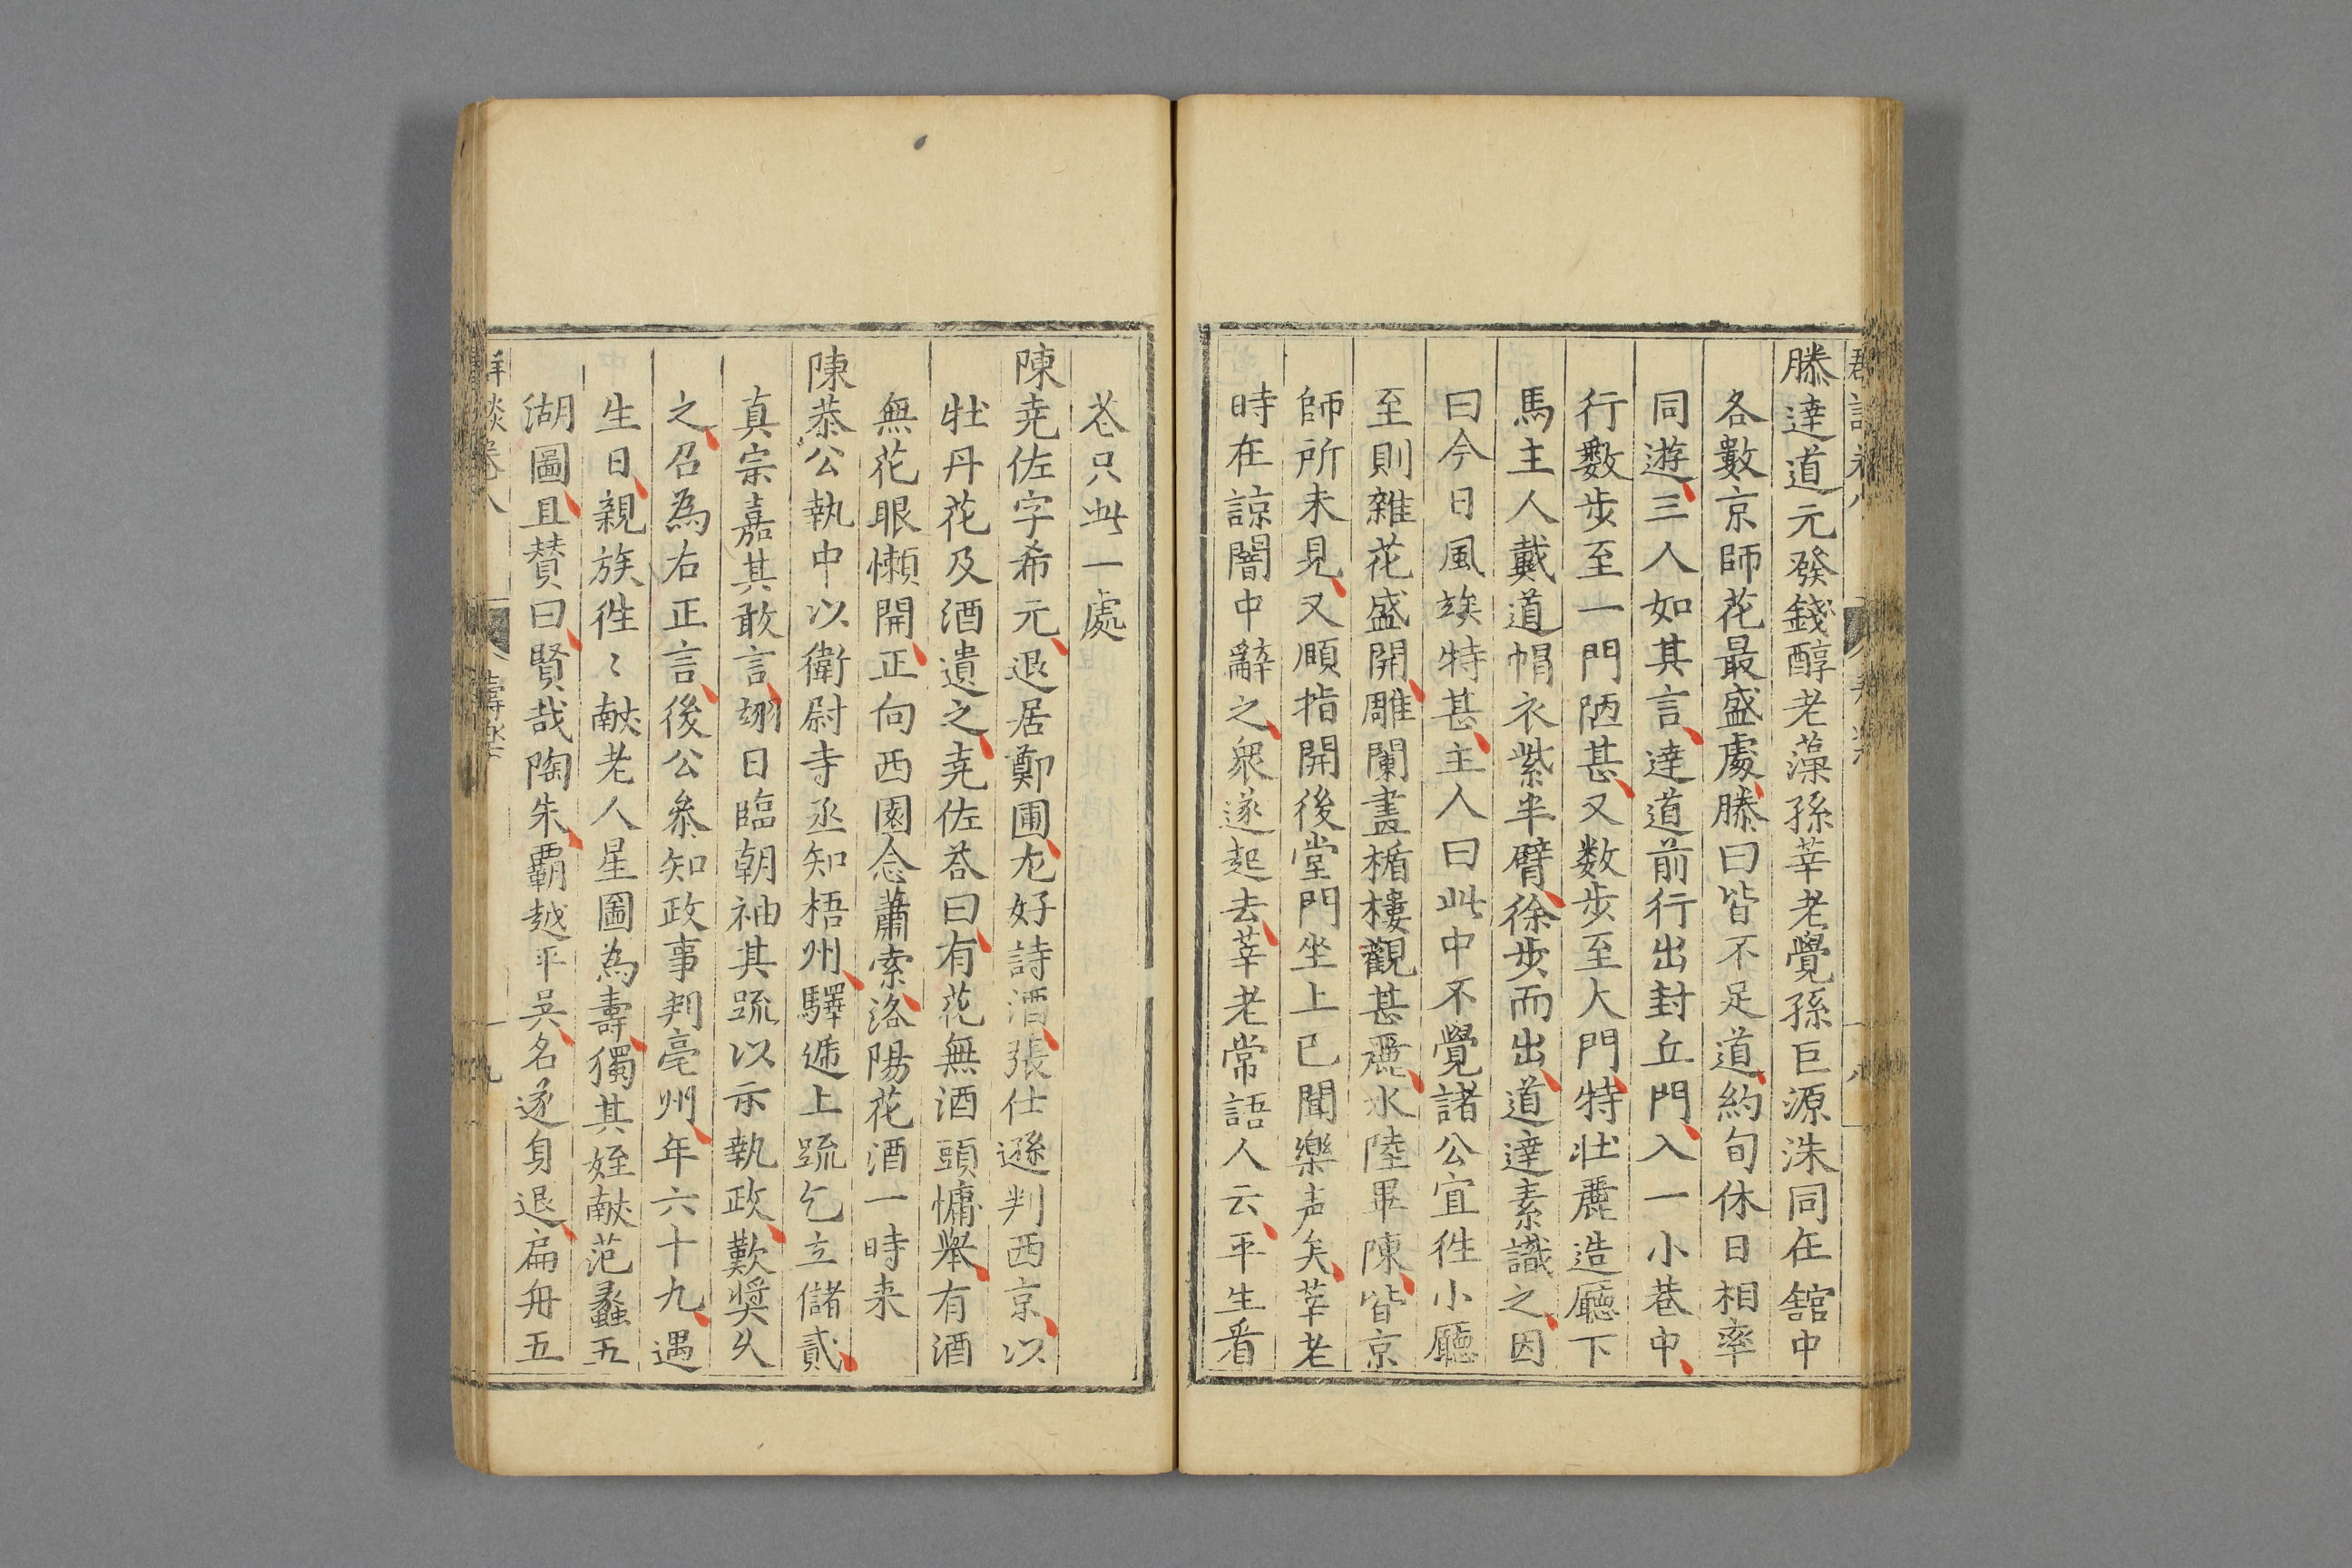 滕達道元發錢醇老藻孫莘老覺孫巨源洙同在舘中
各數京師花最盛處滕曰皆不足道約旬休日相率
同遊三人如其言達道前行出封丘門入一小巷中
行數步至一門陋甚又数步至大門特壮麗造廳下
馬主人戴道帽衣紫半臂徐步而出道達素識之因
曰今日風埃特甚主人曰此中不覺諸公宜徃小廳
至則雜花盛開雕闌畫楯樓觀甚麗水陸畢陳皆京
師所未見又頋指開後堂門坐上已聞樂声矣莘老
時在諒闇中辭之衆遂起去莘老常語人云平生看
花只此一處
陳尭佐字希元退居鄭圃尤好詩酒張仕遜判西京以
牡丹花及酒遺之尭佐荅曰有花無酒頭慵舉有酒
無花眼懶開正向西園念蕭索洛陽花酒一時来
陳恭公執中以衛尉寺丞知梧州驛逓上䟽乞立儲貳
真宗嘉其敢言翊日臨朝袖其䟽以示執政歎奨久
之召為右正言後公叅知政事判亳州年六十九遇
生日親族徃〻献老人星圖為壽獨其姪献范蠡五
湖圖且賛曰賢哉陶朱覇越平吳名遂身退扁舟五